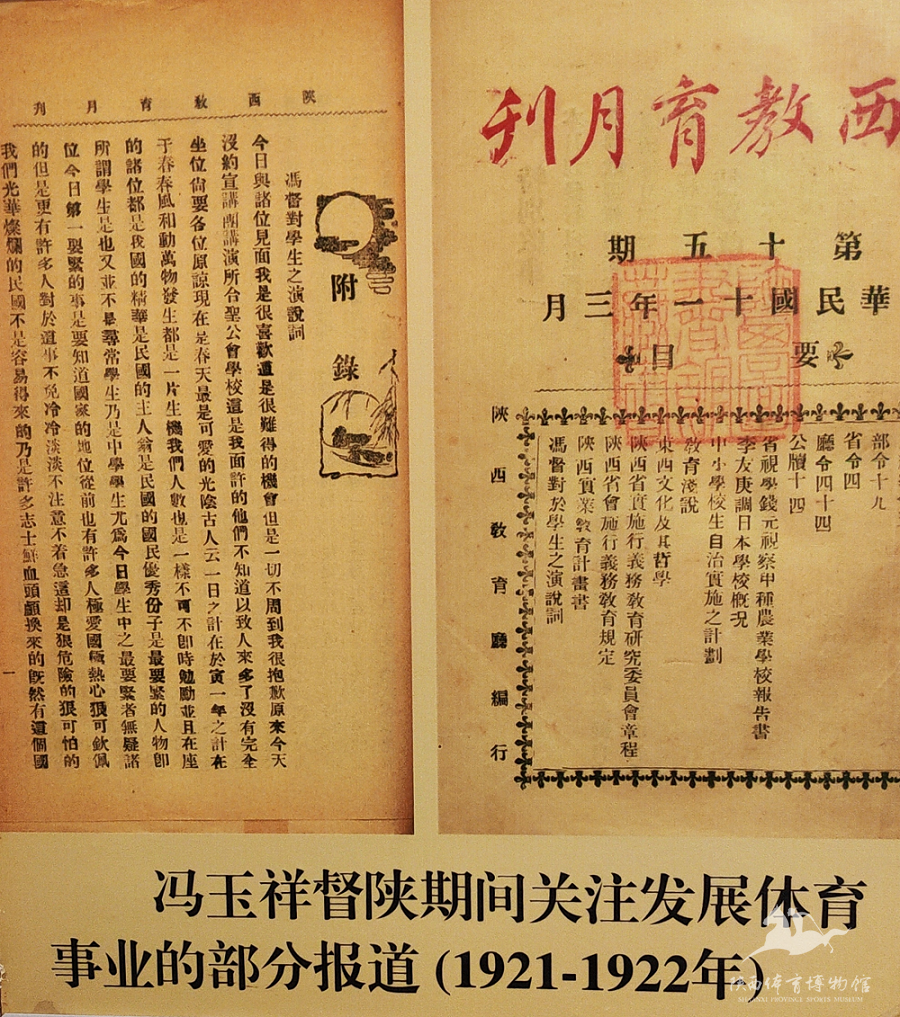 陝西教育月刊
附錄
馮督對學生之演說詞
今日與諸位見面我是很喜歡這是很難得的機會但是一切不周到我很抱歉原來今天
沒約宣講團講演所合聖公會學校這是我面許的他們不知道以致人來多了沒有完全
坐位尙要各位原諒現在是春天最是可愛的光陰古人云一日之計在於寅一年之計在
于春春風和動萬物發生都是一片生機我們人數也是一樣不可不卽時勉勵並且在座
的諸位都是我國的精華是民國的主人翁是民國的國民優秀份子是最要緊的人物卽
所謂學生是也又並不是尋常學生乃是中學學生尤爲今日學生中之最要緊者無疑諸
位今日第一要緊的事是要知道國家的地位從前也有許多人極愛國極熱心狠可欽佩
的但是更有許多人對於這事不免冷冷淡淡不注意不着急這却是狠危險的狠可怕的
我們光華燦爛的民國不是容易得來的乃是許多志士鮮血頭顱換來的旣然有這個國
一
西教育月刊
第十五期
華民國十一年三月
要目
部令十九
省令四
廳令四十四
公牘十四
省視學錢元視察中種農業學校報告書
李友庚調日本學校槪況
中小學校生自治實施之計劃
敎育淺說
東西文化及其哲學
陝西省實施行義務敎育研究委員會章程
陝西省會施行義務敎育規定
陝西實業敎育計畫書
馮督對於學生之演說詞
陝西敎育廳編行
冯玉祥督陕期间关注发展体育
事业的部分报道 (1921-1922年)
陕西体育博物馆
SHAANXI PROVINCE SPORTS MUSEUM